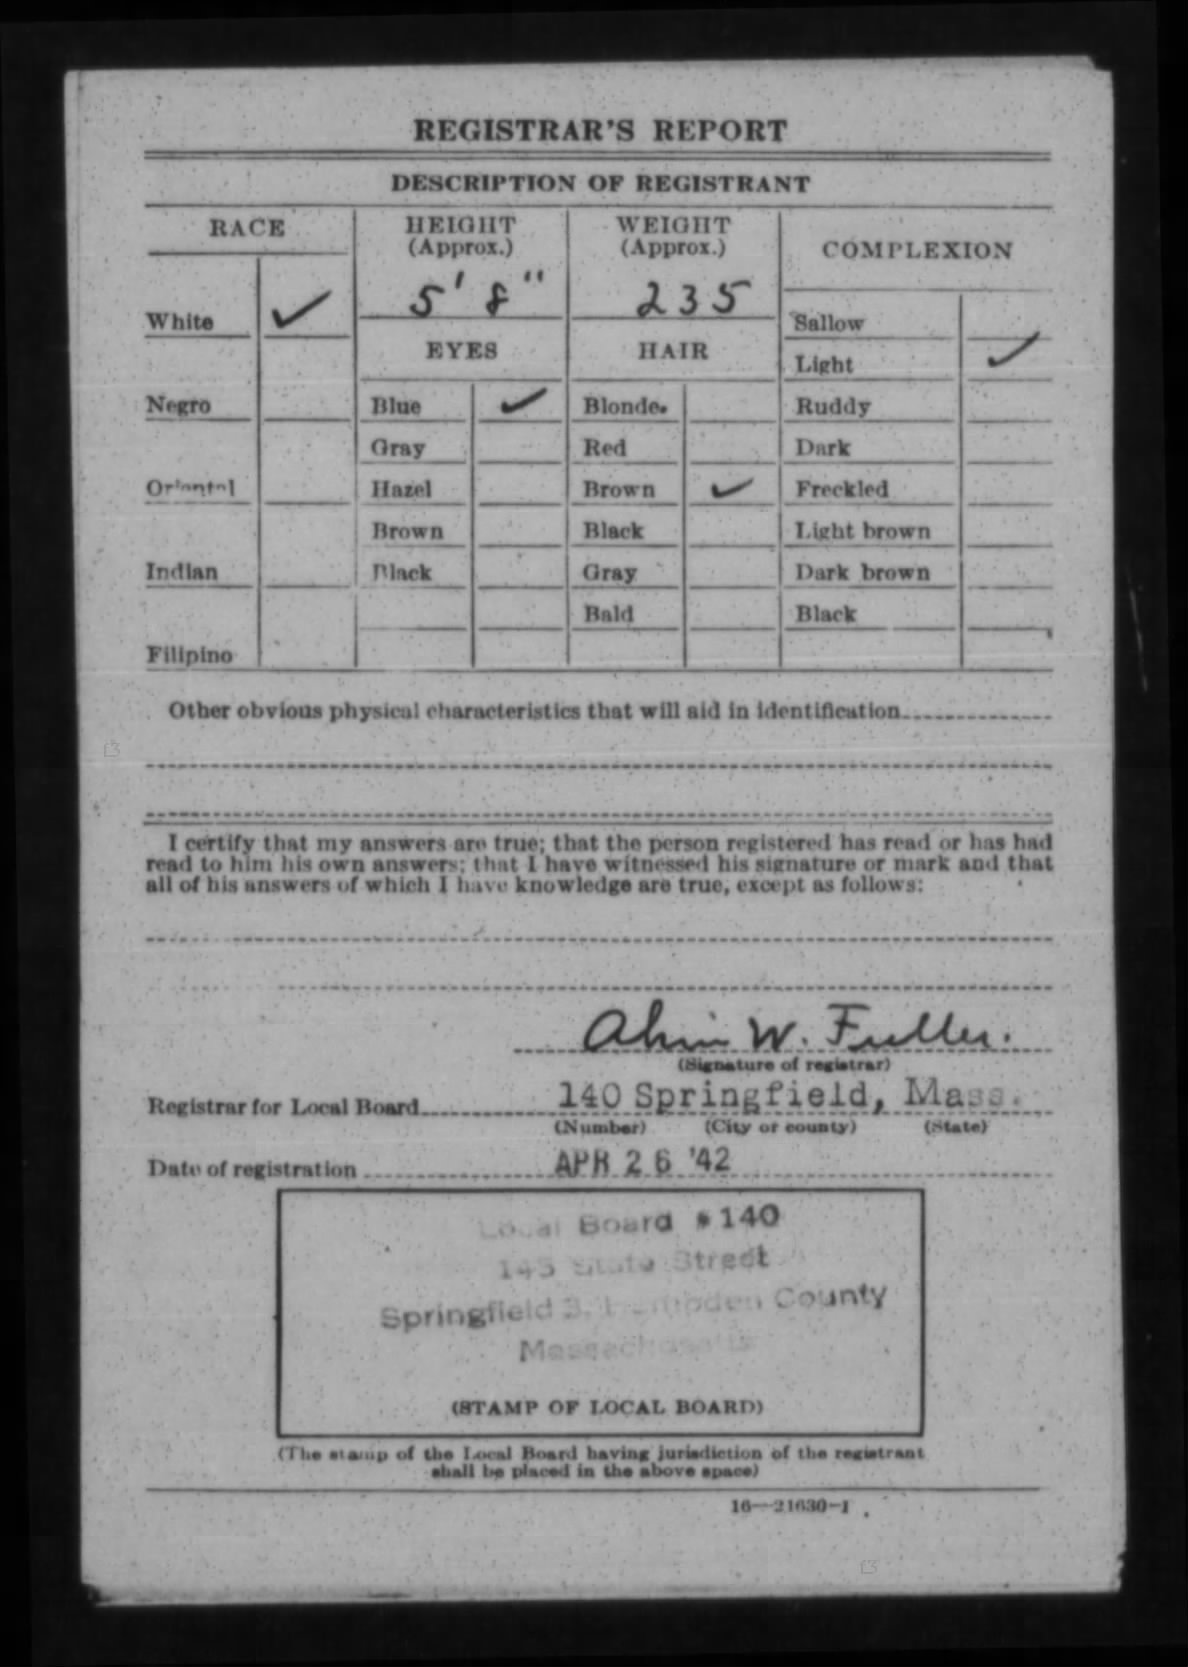 REGISTRAR'S REPORT
DESCRIPTION OF REGISTRANT
RACE
HEIGHT
(Approx.)
WEIGHT
(Approx.)
COMPLEXION
5' 8"
235
White ✓
Sallow
EYES
HAIR
Light ✓
Negro
Blue ✓
Blonde
Ruddy
Gray
Red
Dark
Oriental
Hazel
Brown ✓
Freckled
Brown
Black
Light brown
Indian
Black
Gray
Dark brown
Bald
Black
Filipino
Other obvious physical characteristics that will aid in identification
I certify that my answers are true; that the person registered has read or has had
read to him his own answers; that I have witnessed his signature or mark and that
all of his answers of which I have knowledge are true, except as follows:
W. Fuller.
(Signature of registrar)
Registrar for Local Board 140 Springfield, Mass.
(Number) (City or county) (State)
Date of registration APR 26 '42
Local Board #140
145 State Street
Springfield 3, Hampden County
Massachusetts
(STAMP OF LOCAL BOARD)
(The stamp of the Local Board having jurisdiction of the registrant
shall be placed in the above space)
16—21630-1
f3
f3